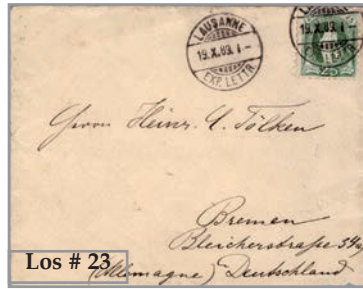 LAUSANNE
19.X.89. I–
EXP. LETTR.
19.X.89. I–
25
Herrn Heinr. A. Tölken
Bremen
Bleicherstraße 34a
(Allemagne) Deutschland
Los # 23